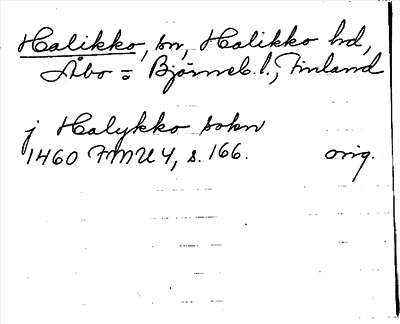 Halikko, sn, Halikko hd,
Åbo = Björneb. l., Finland
j Halykko sokn
1460 FMU 4, s. 166. orig.